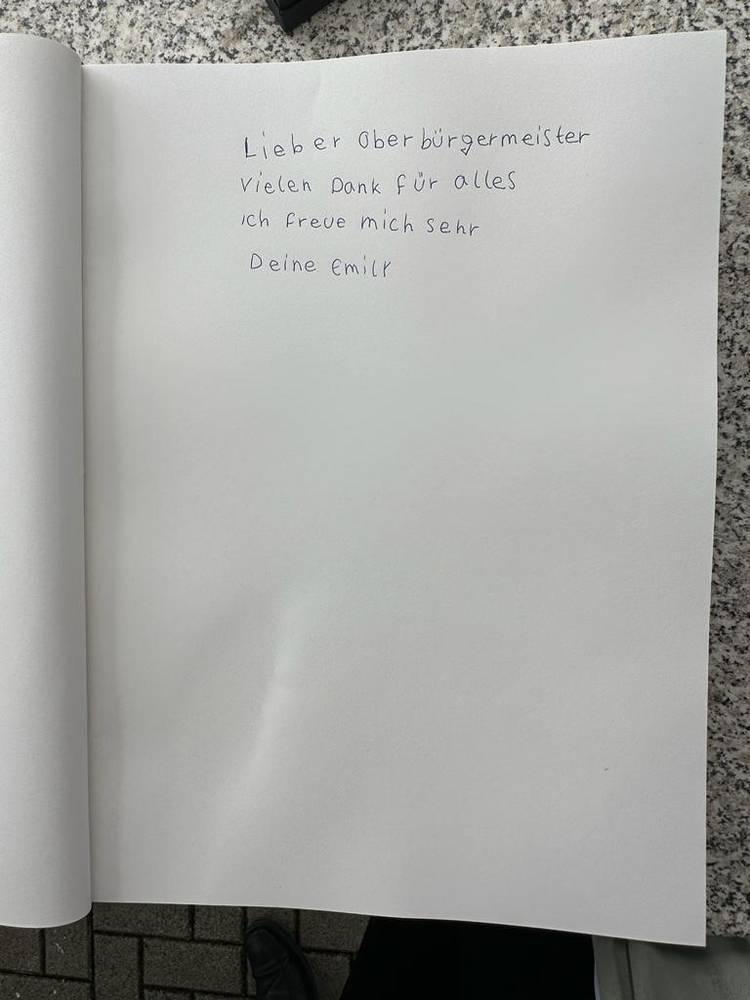 Lieber Oberbürgermeister
Vielen Dank für alles
Ich freue mich sehr
Deine Emily